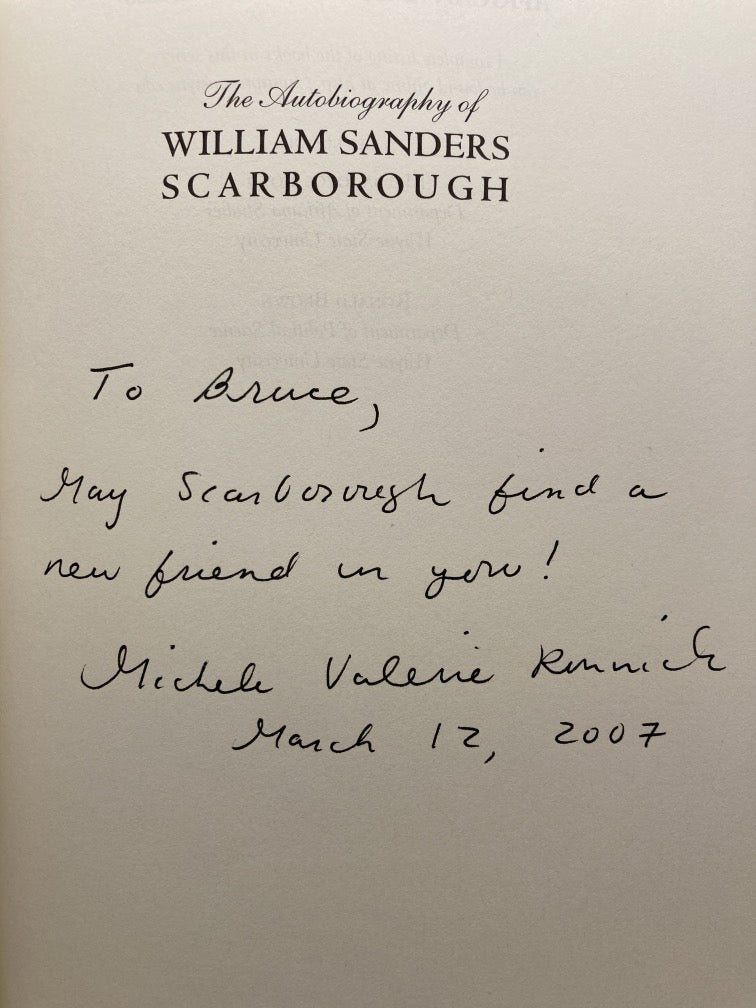 The Autobiography of
WILLIAM SANDERS
SCARBOROUGH
To Bruce,
May Scarborough find a
new friend in you!
Michele Valerie Ronnick
March 12, 2007